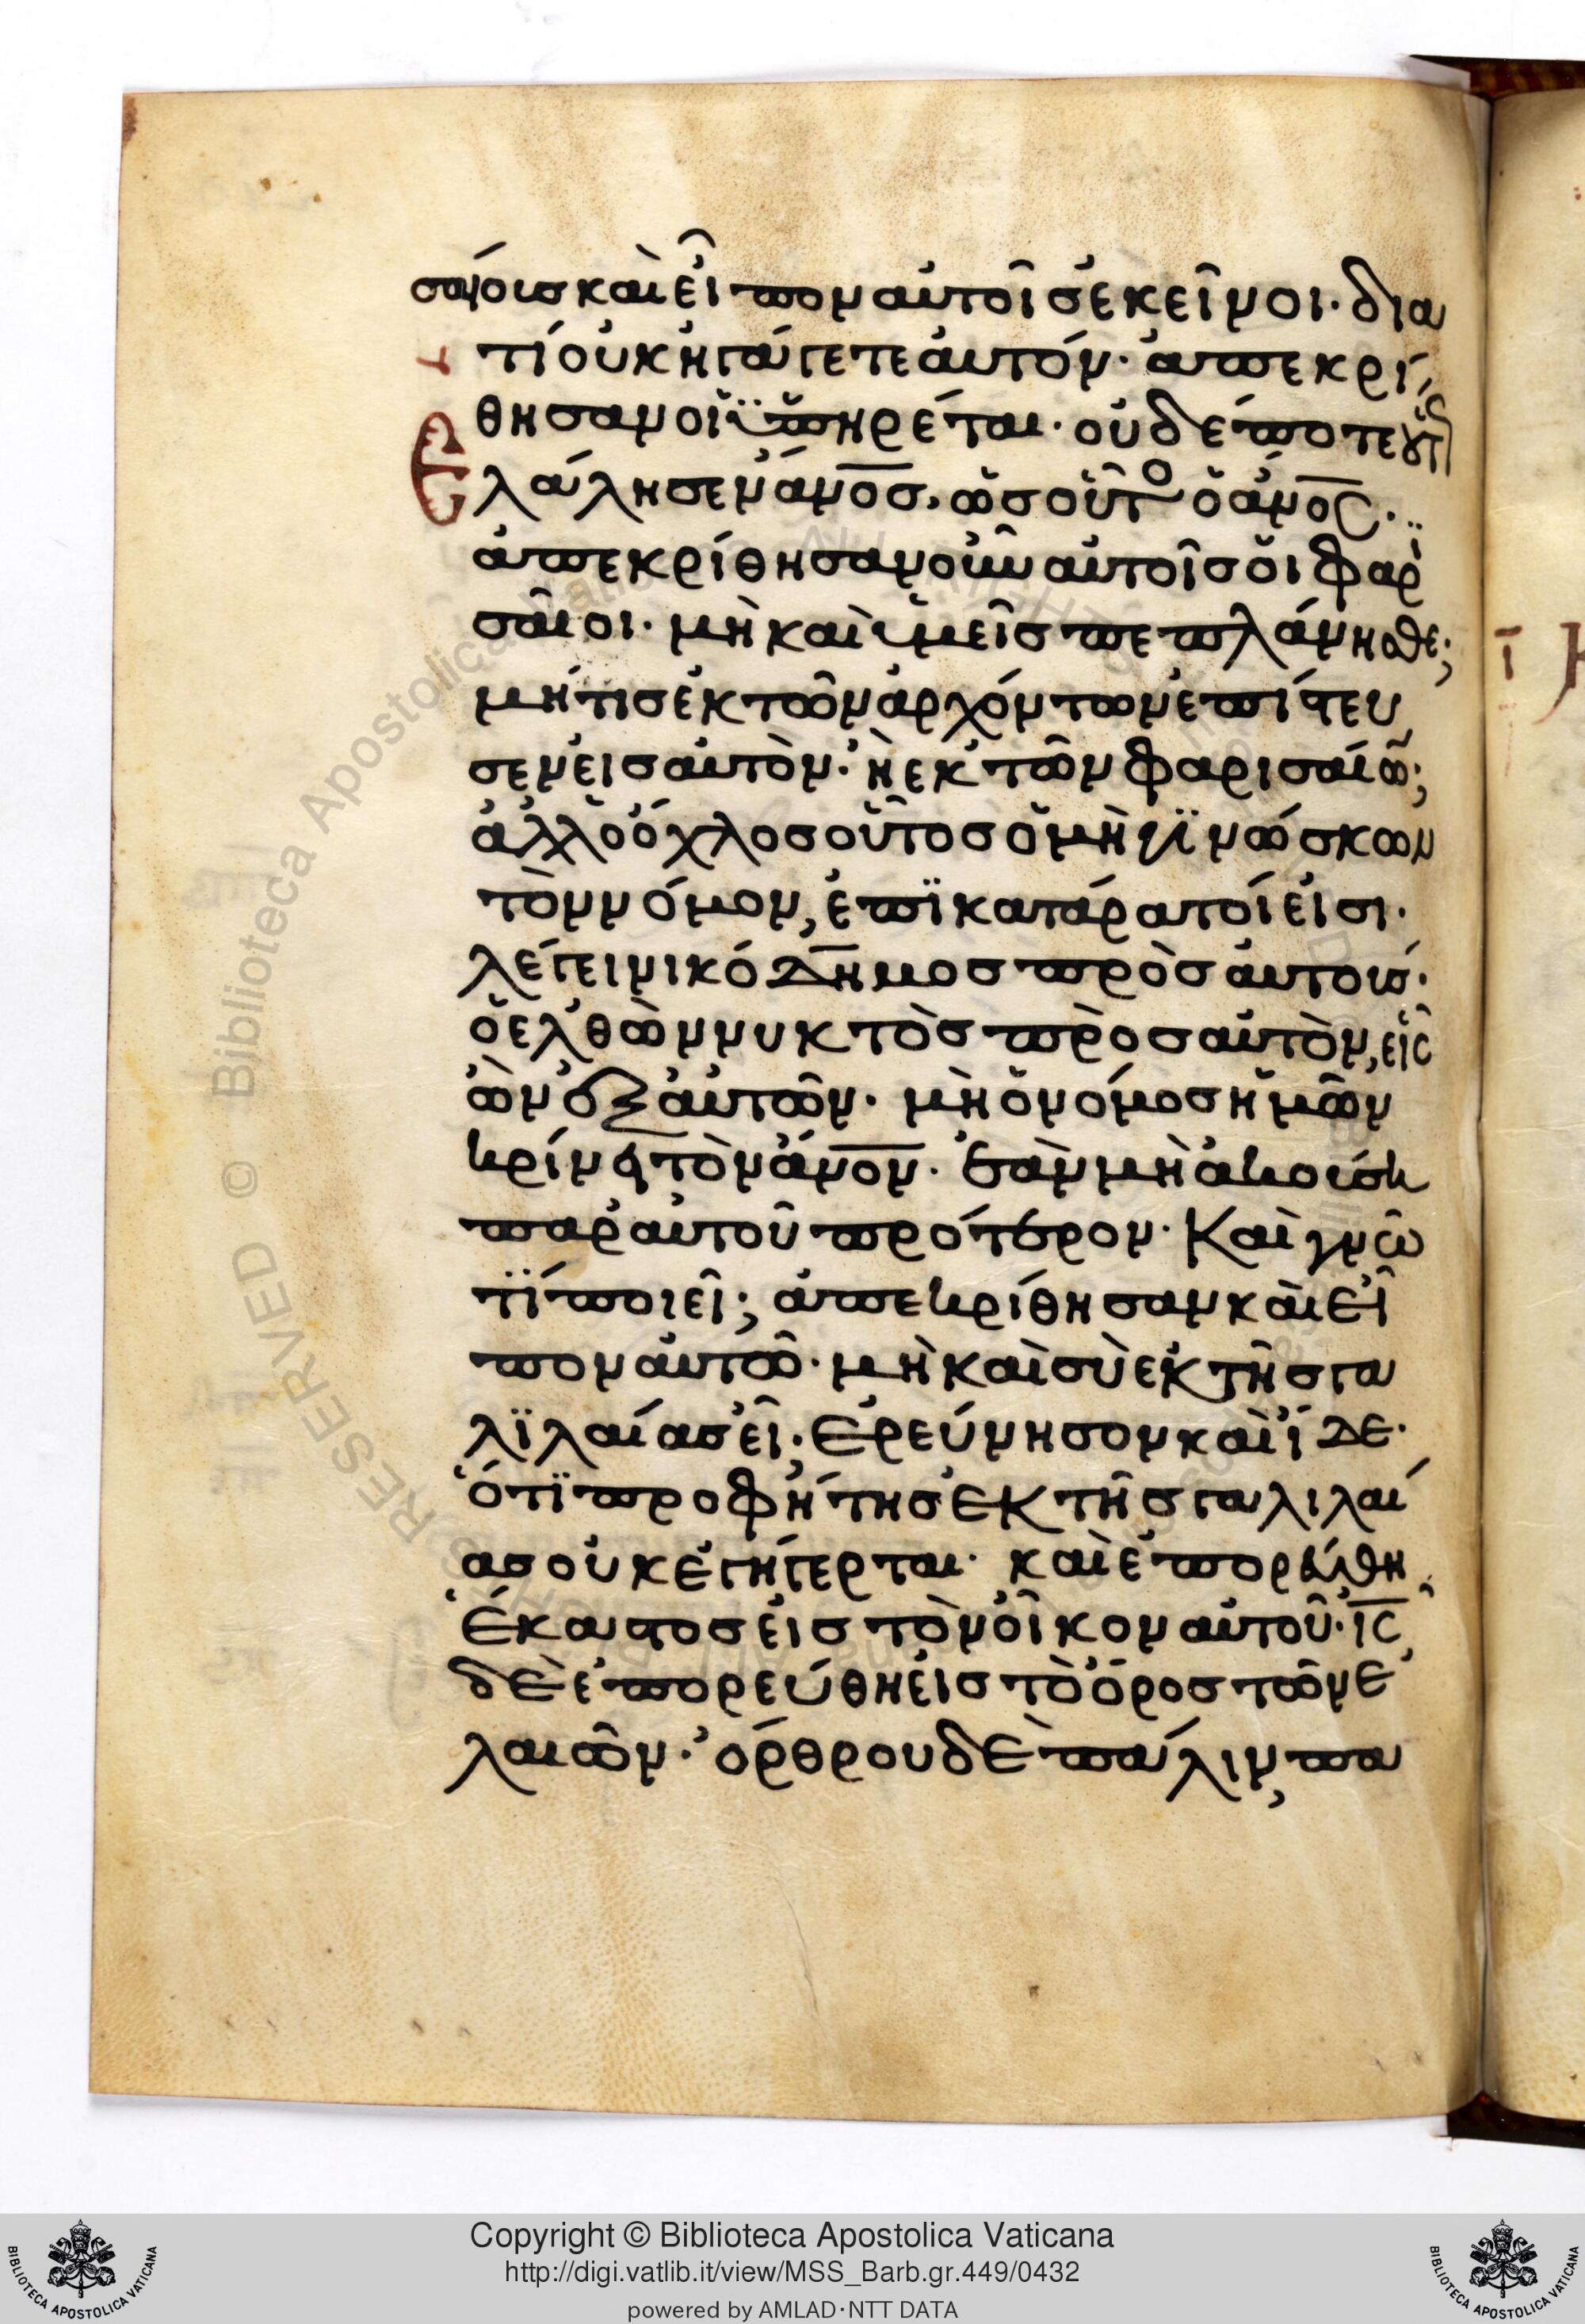 σαίους καὶ εἶπον αὐτοῖς ἐκεῖνοι· δια
τί οὐκ ἠγάγετε αὐτόν· ἀπεκρί
θησαν οἱ ὑπηρέται· οὐδέποτε οὕτ
ἐλάλησεν ἄνος, ὡς οὗτο ὁ ἄνος·
ἀπεκρίθησαν οὖν αὐτοῖς οἱ φαρϊ
σαῖοι· μὴ καὶ ὑμεῖς πεπλάνησθε;
μήτις ἐκ τῶν ἀρχόντων ἐπίστευ
σεν εἰς αὐτὸν· ἢ ἐκ τῶν φαρισαίω;
ἀλλ ὁ ὄχλος οὗτος ὁ μὴ γϊνώσκων
τὸν νόμον, ἐπϊκατάρατοί εἰσι·
λέγει νικόδημος πρὸς αὐτούς·
ὁ ἐλθὼν νυκτὸς πρὸς αὐτὸν, εἷς
ὢν ἐξ αὐτῶν· μὴ ὁ νόμος ἡμῶν
κρίνει τὸν ἄνον· ἐὰν μὴ ἀκούση
παρ αὐτοῦ πρότερον· καὶ γνῶ
τΐ ποιεῖ; ἀπεκρίθησαν καὶ εἶ
πον αὐτῶ· μὴ καὶ σὺ ἐκ τῆς γα
λϊλαίας εἶ; ἐρεύνησον καὶ ἴδε·
ὅτϊ προφήτης ἐκ τῆς γαλιλαί
ας οὐκ ἐγήγερται· καὶ ἐπορεύθη
ἕκαστος εἰς τὸν οἶκον αὐτοῦ· ις
δὲ ἐπορεύθη εἰς τὸ ὄρος τῶν ἐ
λαιῶν· ὄρθρου δὲ πάλιν, πα
Copyright © Biblioteca Apostolica Vaticana
http://digi.vatlib.it/view/MSS_Barb.gr.449/0432
powered by AMLAD·NTT DATA
BIBLIOTECA APOSTOLICA VATICANA
BIBLIOTECA APOSTOLICA VATICANA